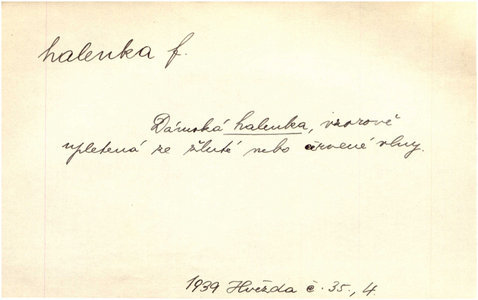 halenka f.
Dámská halenka, vzorově
upletená ze žluté nebo červené vlny.
1939 Hvězda č. 35., 4